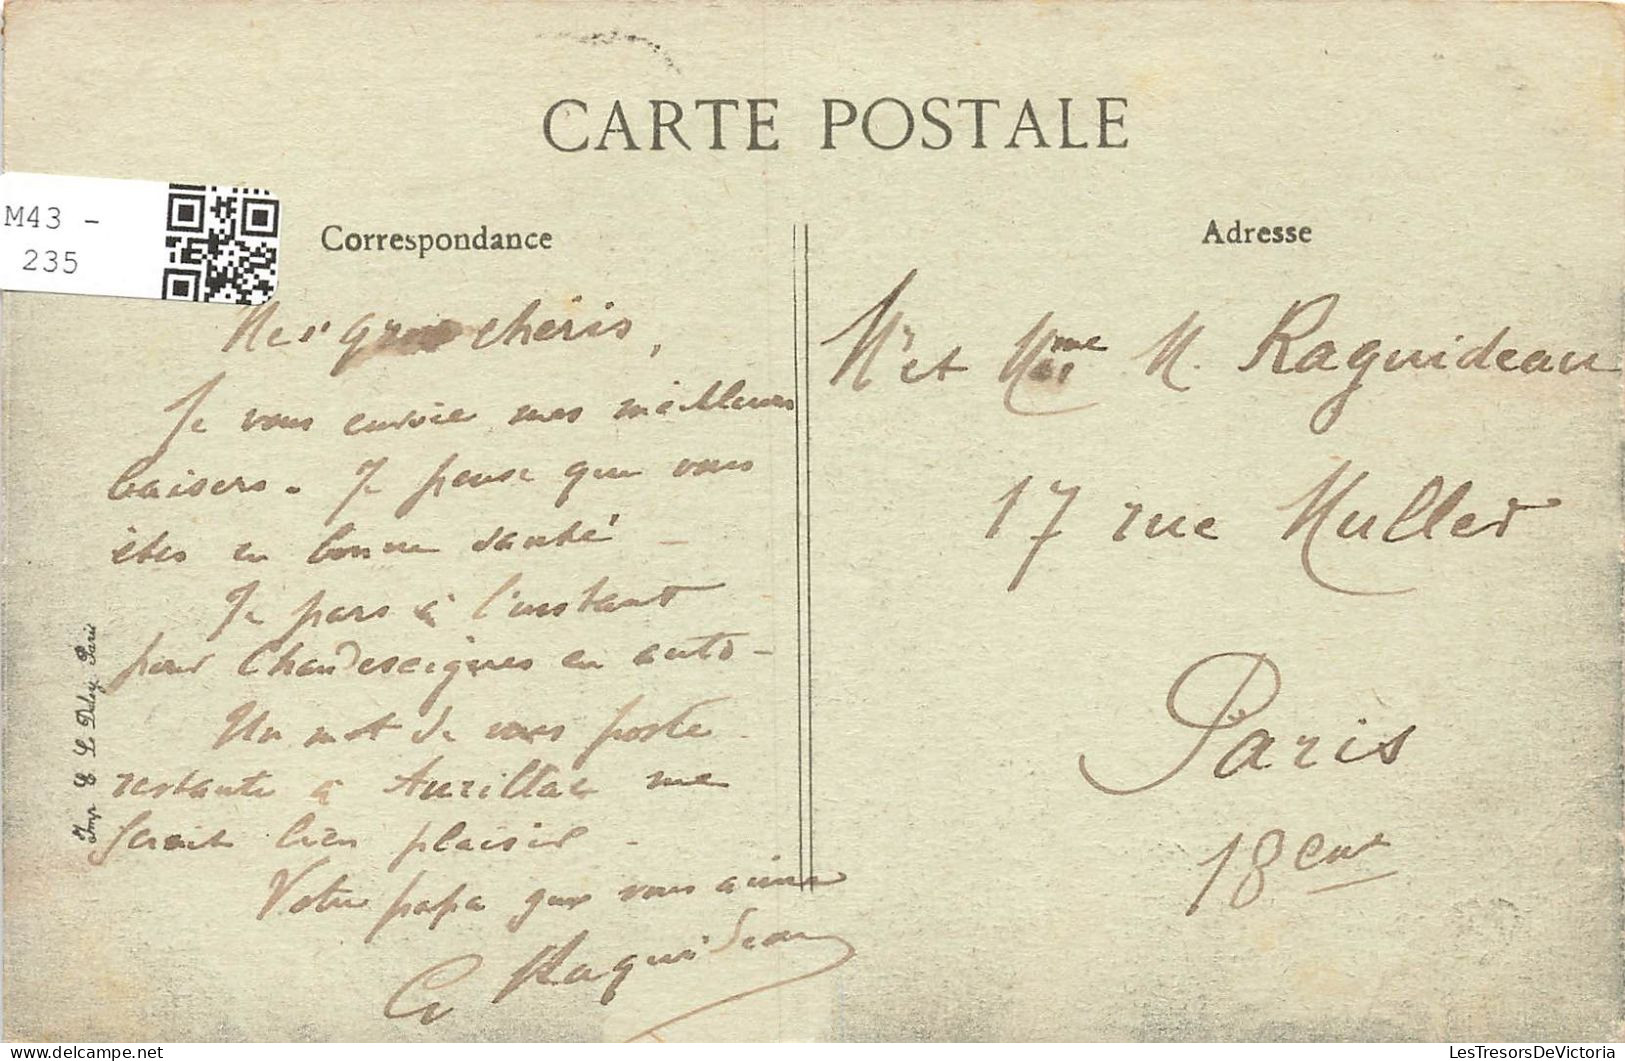 CARTE POSTALE
M43 -
235
Correspondance
Mes gros cheris,
Je vous envoie mes meilleurs
baisers. Je pense que vous
êtes en bonne santé –
Je pars à l'instant
pour Chaudesaigues en auto –
Un mot de vous poste
restante à Aurillac me
ferait bien plaisir –
Votre papa que vous aime
G Raguideau
Imp E Le Deley Paris
Adresse
Mr et Mme M. Raguideau
17 rue Muller
Paris
18 eme
LesTresorsDeVictoria